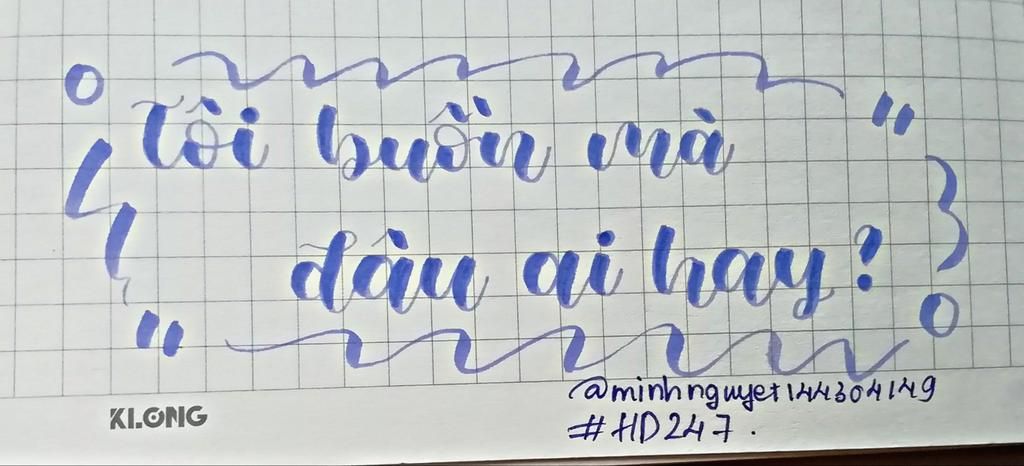 Tôi buồn mà
đâu ai hay?
@minhnguyet144304149
KLONG
#HD247.